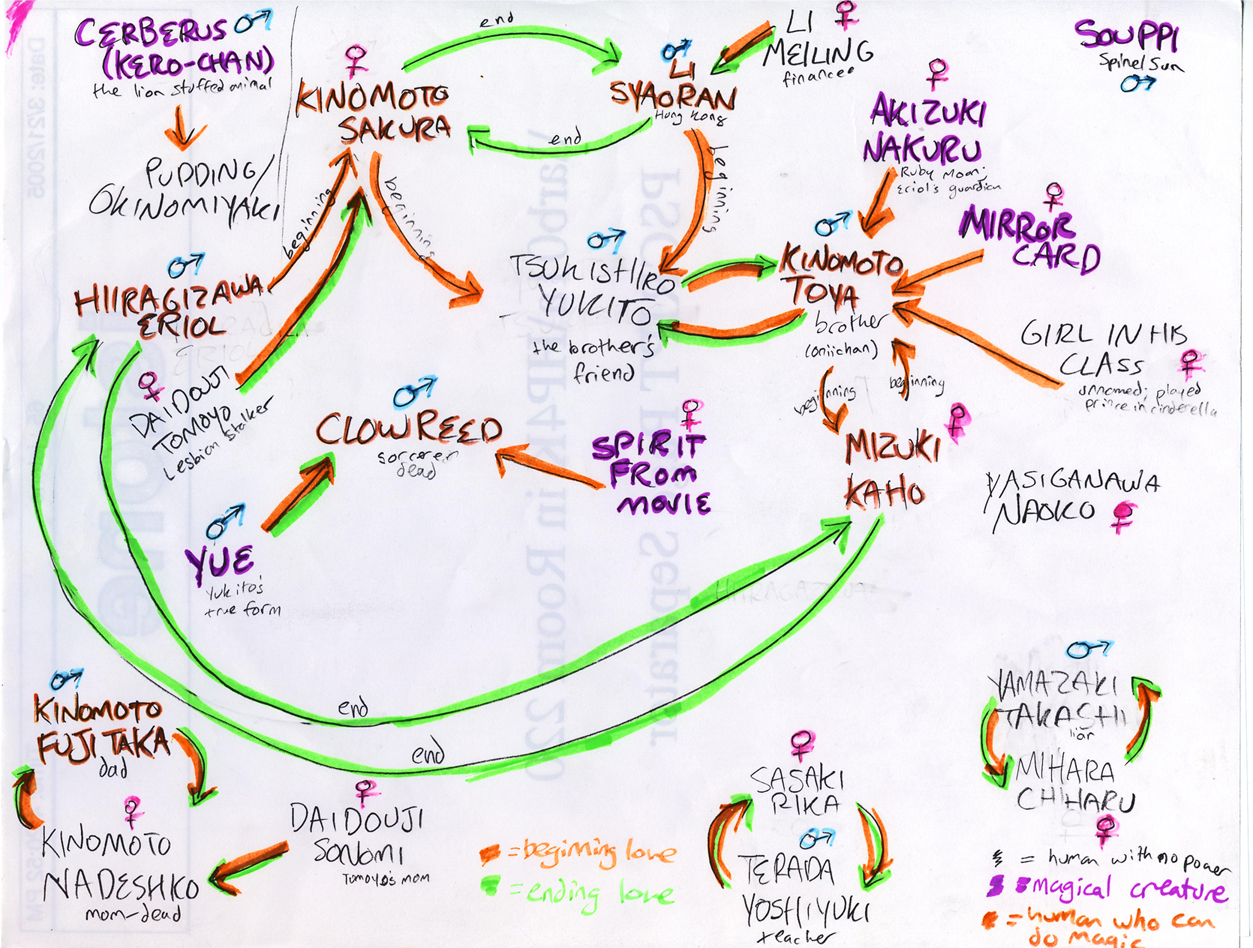 CERBERUS
(KERO-CHAN)
the lion stuffed animal
PUDDING/
OKINOMIYAKI
KINOMOTO
SAKURA
end
end
LI
SYAORAN
Hong Kong
LI
MEILING
financee
SOUPPI
Spinel Sun
AKIZUKI
NAKURU
Ruby Moon,
Eriol's guardian
MIRROR
CARD
beginning
beginning
beginning
HIIRAGIZAWA
ERIOL
TSUKISHIRO
YUKITO
the brother's
friend
KINOMOTO
TOYA
brother
(oniichan)
GIRL IN HIS
CLASS
unnamed; played
prince in cinderella
DAIDOUJI
TOMOYO
Lesbian Stalker
CLOW REED
sorcerer
dead
SPIRIT
FROM
MOVIE
beginning
beginning
MIZUKI
KAHO
YASIGANAWA
NAOKO
YUE
Yukito's
true form
end
end
KINOMOTO
FUJITAKA
dad
KINOMOTO
NADESHKO
mom-dead
DAIDOUJI
SONOMI
Tomoyo's mom
= beginning love
= ending love
SASAKI
RIKA
TERADA
YOSHIYUKI
teacher
YAMAZAKI
TAKASHI
liar
MIHARA
CHIHARU
= human with no power
= magical creature
= human who can
do magic
Date: 3/21/2005